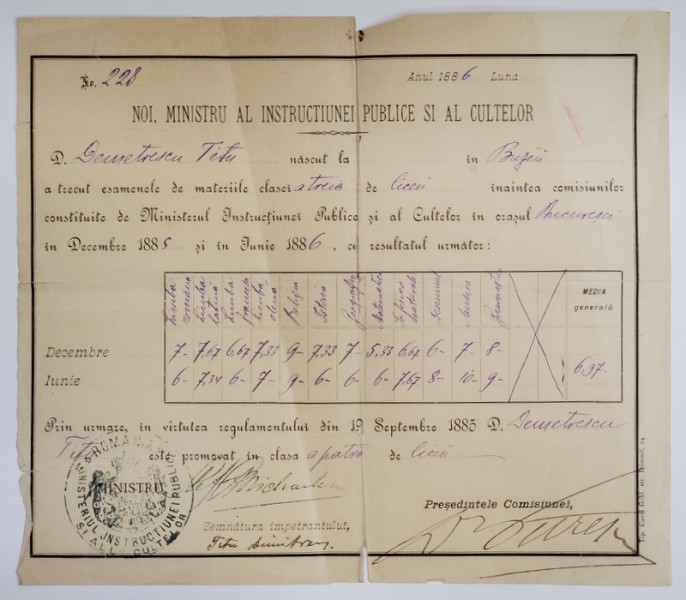 No. 228 Anul 1886 Luna
NOI, MINISTRU AL INSTRUCTIUNEI PUBLICE SI AL CULTELOR
D. Demetrescu Titu născut la în Buzău
a trecut esamenele de materiile clasei a treia de liceu înaintea comisiunilor
constituite de Ministerul Instrucţiunei Publice şi al Cultelor în oraşul Bucuresci
în Decembre 1885 şi în Iunie 1886, cu resultatul următor:
limba romana limba latina limba franceza limba elena Religia Istoria Geografia Matematica Desemnul MEDIA generală
Decembre 7- 7,67 6,67 7,33 9- 7,33 7- 5,33 6,67 6- 7- 8-
Iunie 6- 7,34 6- 7- 9- 6- 6- 6- 7,67 8- 10- 9- 6,97-
Prin urmare, în virtutea regulamentului din 19 Septembre 1885 D. Demetrescu
Titu este promovat în clasa a patra de liceu
MINISTRU
ROMANIA
MINISTERIUL INSTRUCTIUNEI PUBLICE SI AL CULTELOR
Preşedintele Comisiunei,
Semnătura impetrantului,
Titu